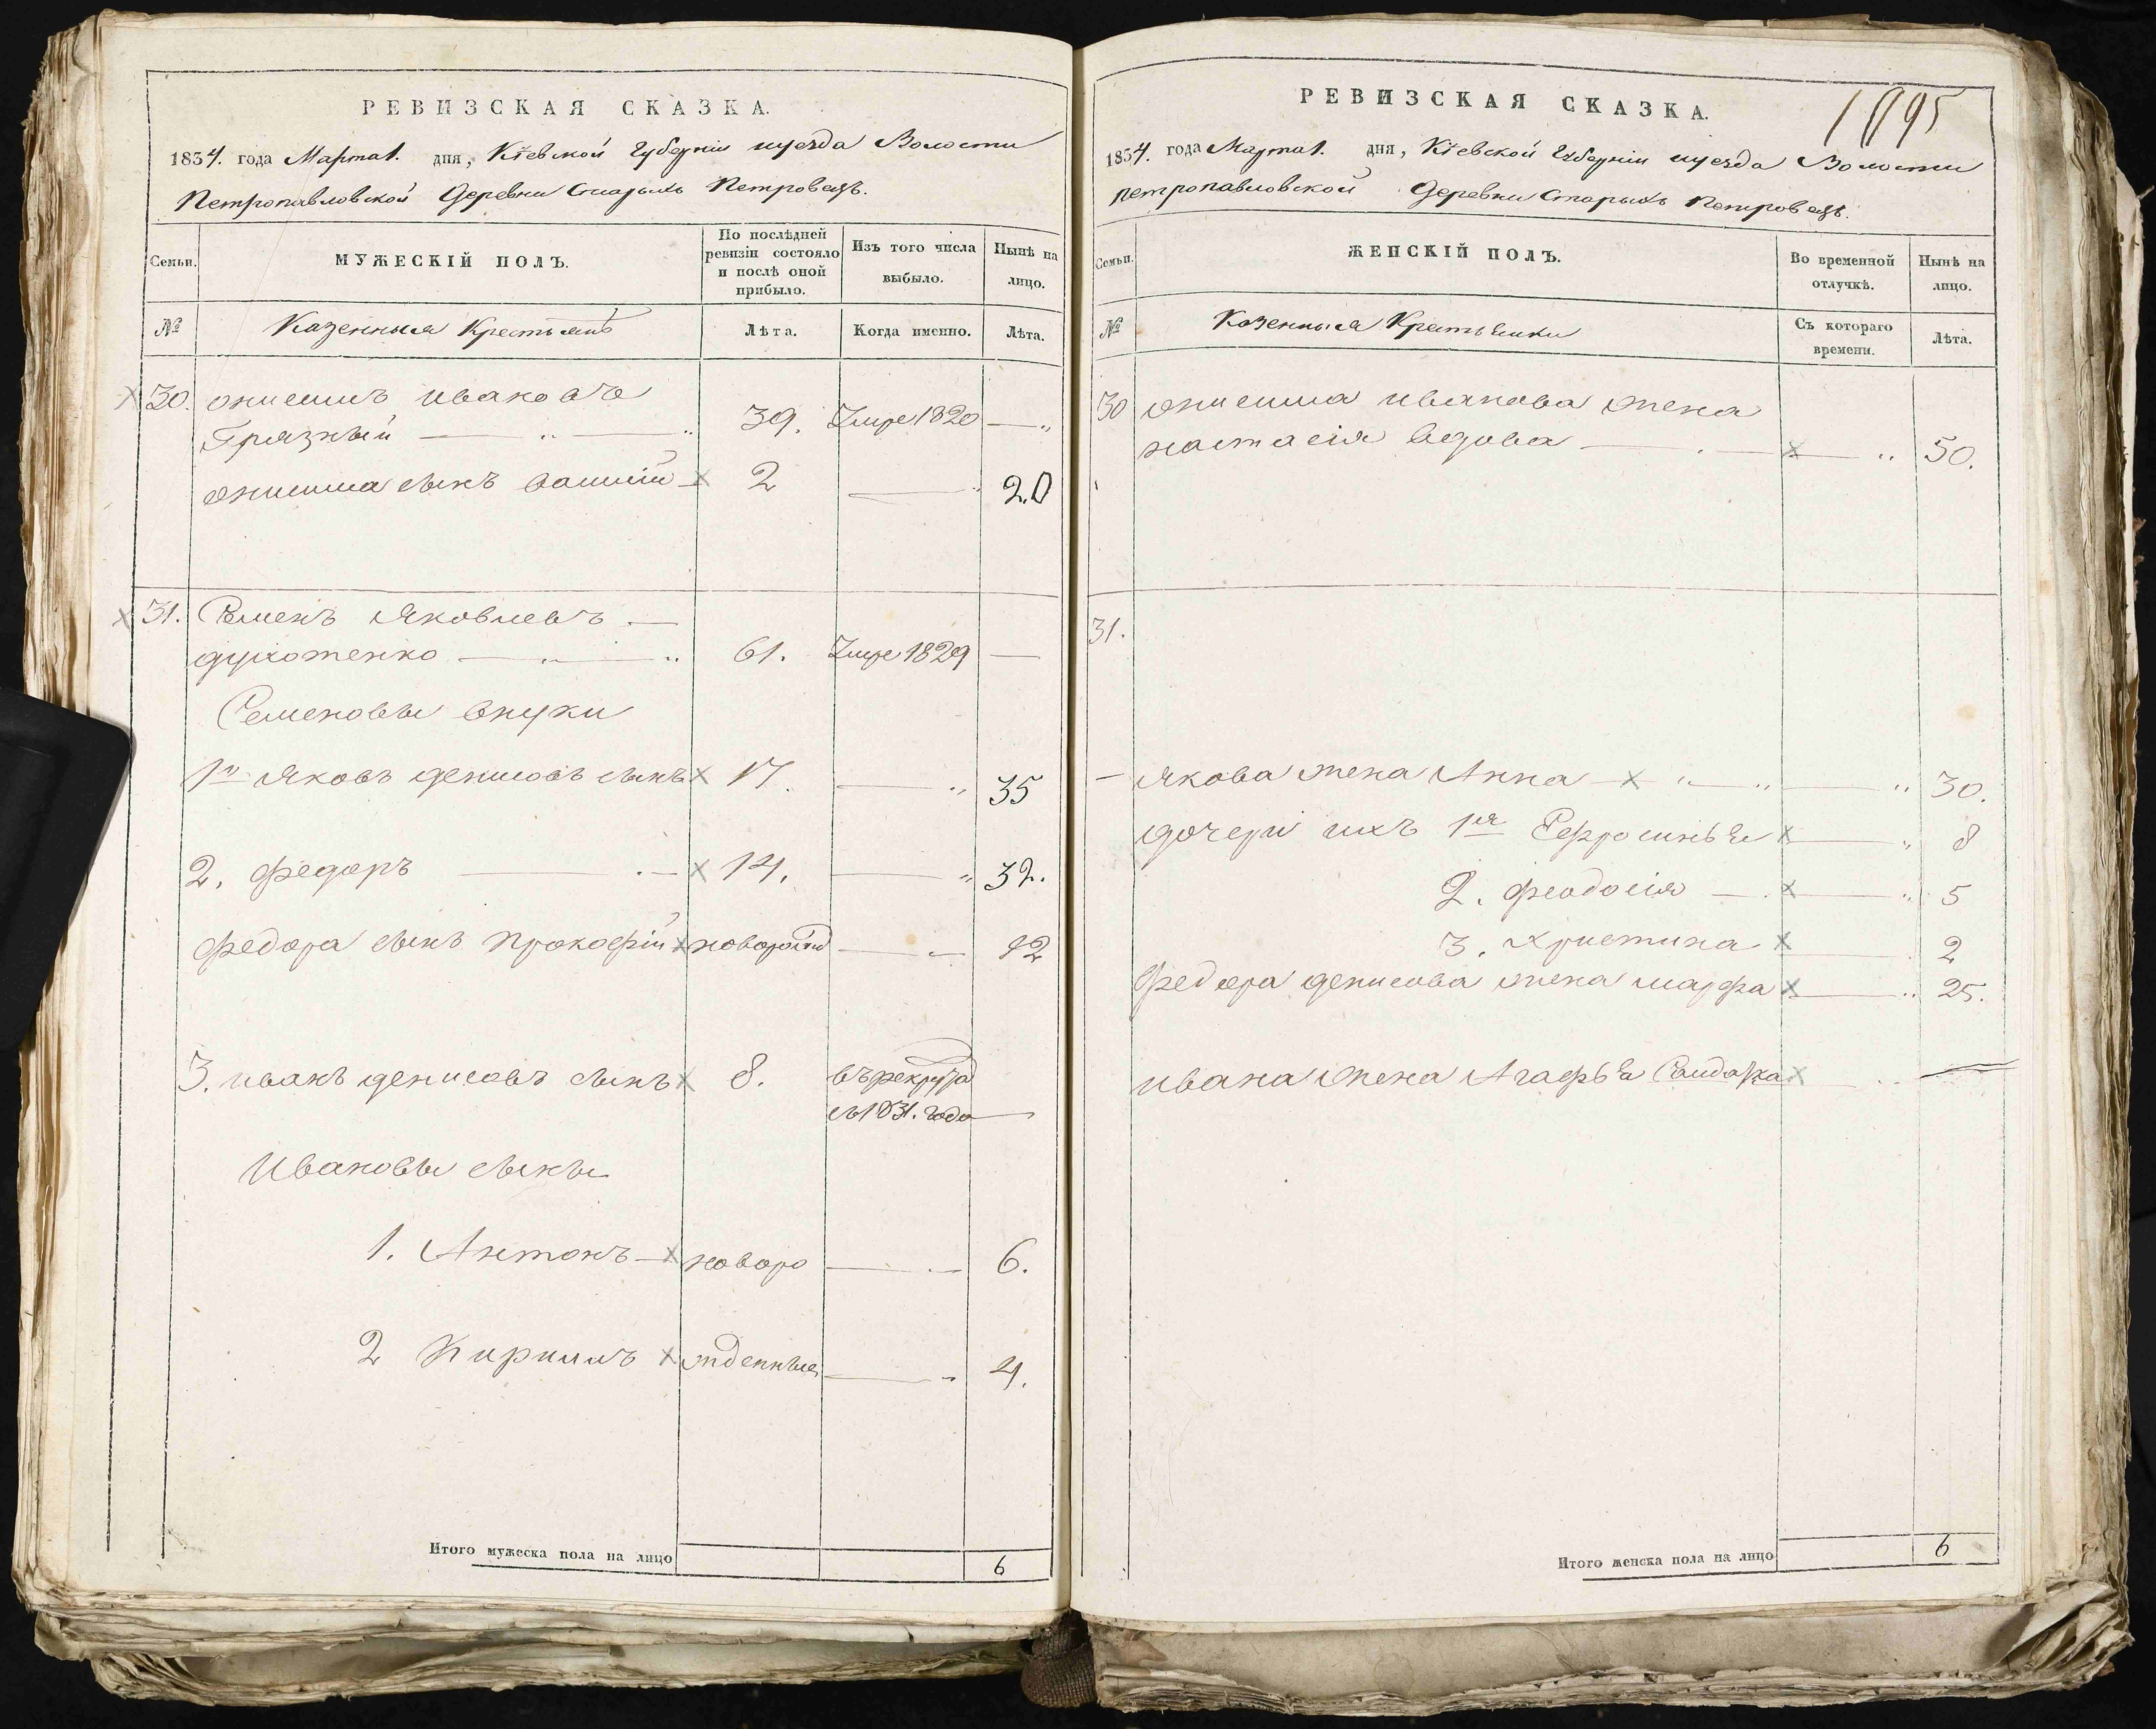 РЕВИЗСКАЯ СКАЗКА.
1834. года Марта 1. дня, Кіевской Губерніи и уезда Волости
Петропавловской Деревни Старыхъ Петровецъ.
Семьи.
МУЖЕСКІЙ ПОЛЪ.
По послѣдней ревизіи состояло и послѣ оной прибыло.
Изъ того числа выбыло.
Нынѣ на лицо.
№
Казенныя Крестьянъ
Лѣта.
Когда именно.
Лѣта.
30. онисимъ ивановъ
Грязный 39. Умре 1820
онисима сынъ василій 2 20
31. Семенъ Яковлевъ
духоженко 61. Умре 1829
Семеновы внуки
1й Яковъ денисовъ сынъ 17. 35
2. федоръ 14. 32.
федора сынъ прокофій новорожд 12
3. иванъ денисовъ сынъ 8. въ рекрута
съ 1831. года
Ивановы сыны
1. Антонъ новоро 6.
2 Кирилъ жденныя 4.
Итого мужеска пола на лицо 6
1895
РЕВИЗСКАЯ СКАЗКА.
1834. года Марта 1. дня, Кіевской Губерніи и уезда Волости
петропавловской Деревни Старыхъ Петровецъ.
Семьи.
ЖЕНСКІЙ ПОЛЪ.
Во временной отлучкѣ.
Нынѣ на лицо.
№
Казенныя Крестьянки
Съ котораго времени.
Лѣта.
30 онисима иванова жена
настасія вдова 50.
31.
Якова жена Анна 30.
дочери ихъ 1я Ефросинья 8
2. феодосія 5
3. Христина 2
федора денисова жена марфа 25.
ивана жена Агафья Солдатка
Итого женска пола на лицо 6